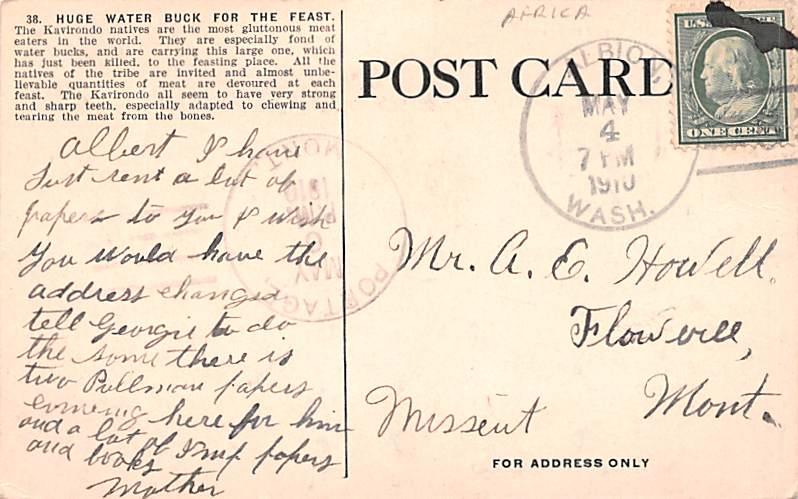 38. HUGE WATER BUCK FOR THE FEAST.
The Kavirondo natives are the most gluttonous meat
eaters in the world. They are especially fond of
water bucks, and are carrying this large one, which
has just been killed, to the feasting place. All the
natives of the tribe are invited and almost unbe-
lievable quantities of meat are devoured at each
feast. The Kavirondo all seem to have very strong
and sharp teeth, especially adapted to chewing and
tearing the meat from the bones.
Albert I have
Just sent a lot of
papers to You I wish
You would have the
address changed
tell Georgie to do
the some there is
two Pullman papers
coming here for him
and a lot of Imp papers
and books
Mother
AFRICA
POST CARD
ALBION
MAY
4
7 PM
1910
WASH.
U.S.
ONE CENT
PORTAGE
MONT.
MAY
1910
Mr. A. E. Howell,
Flowerree,
Mont.
Missent
FOR ADDRESS ONLY